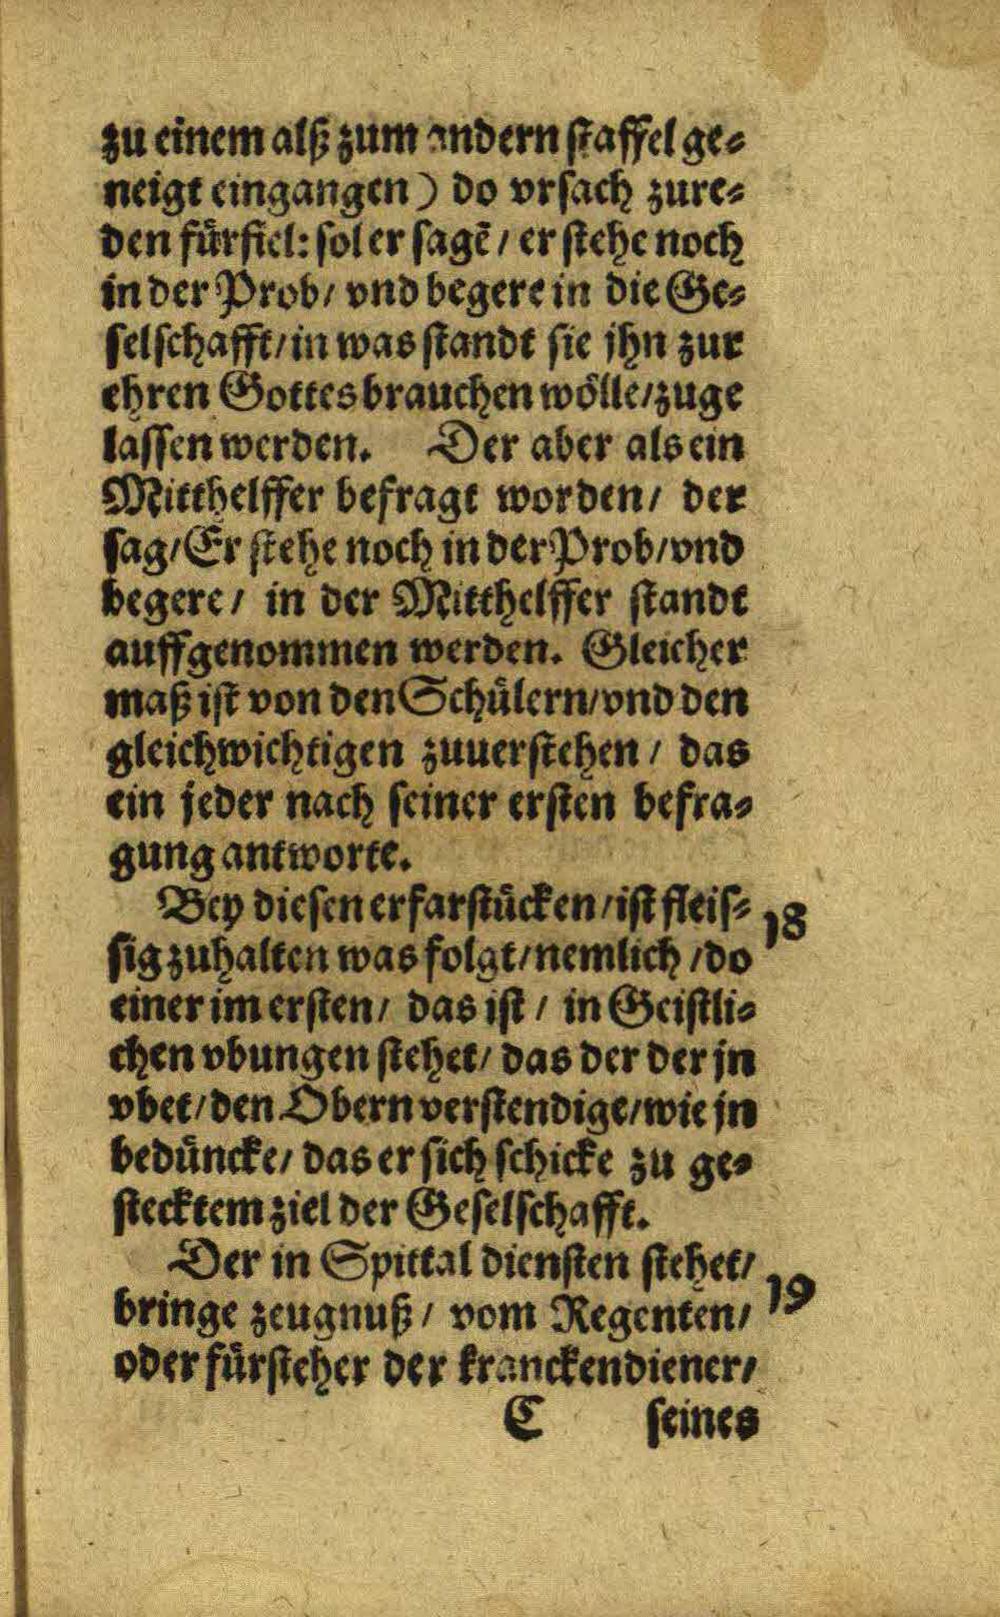 zu einem alß zum andern staffel ge⸗
neigt eingangen) do vrsach zure⸗
den fürfiel: sol er sagẽ / er stehe noch
in der Prob / vnd begere in die Ge⸗
selschafft / in was standt sie jhn zur
ehren Gottes brauchen wölle / zuge
lassen werden. Der aber als ein
Mitthelffer befragt worden / der
sag / Er stehe noch in der Prob / vnd
begere / in der Mitthelffer standt
auffgenommen werden. Gleicher
maß ist von den Schülern / vnd den
gleichwichtigen zuuerstehen / das
ein jeder nach seiner ersten befra⸗
gung antworte.
Bey diesen erfarstücken / ist fleis⸗ 18
sig zuhalten was folgt / nemlich / do
einer im ersten / das ist / in Geistli⸗
chen vbungen stehet / das der der jn
vbet / den Obern verstendige / wie jn
bedüncke / das er sich schicke zu ge⸗
stecktem ziel der Geselschafft.
Der in Spittal diensten stehet / 19
bringe zeugnuß / vom Regenten /
oder fürsteher der kranckendiener /
C seines